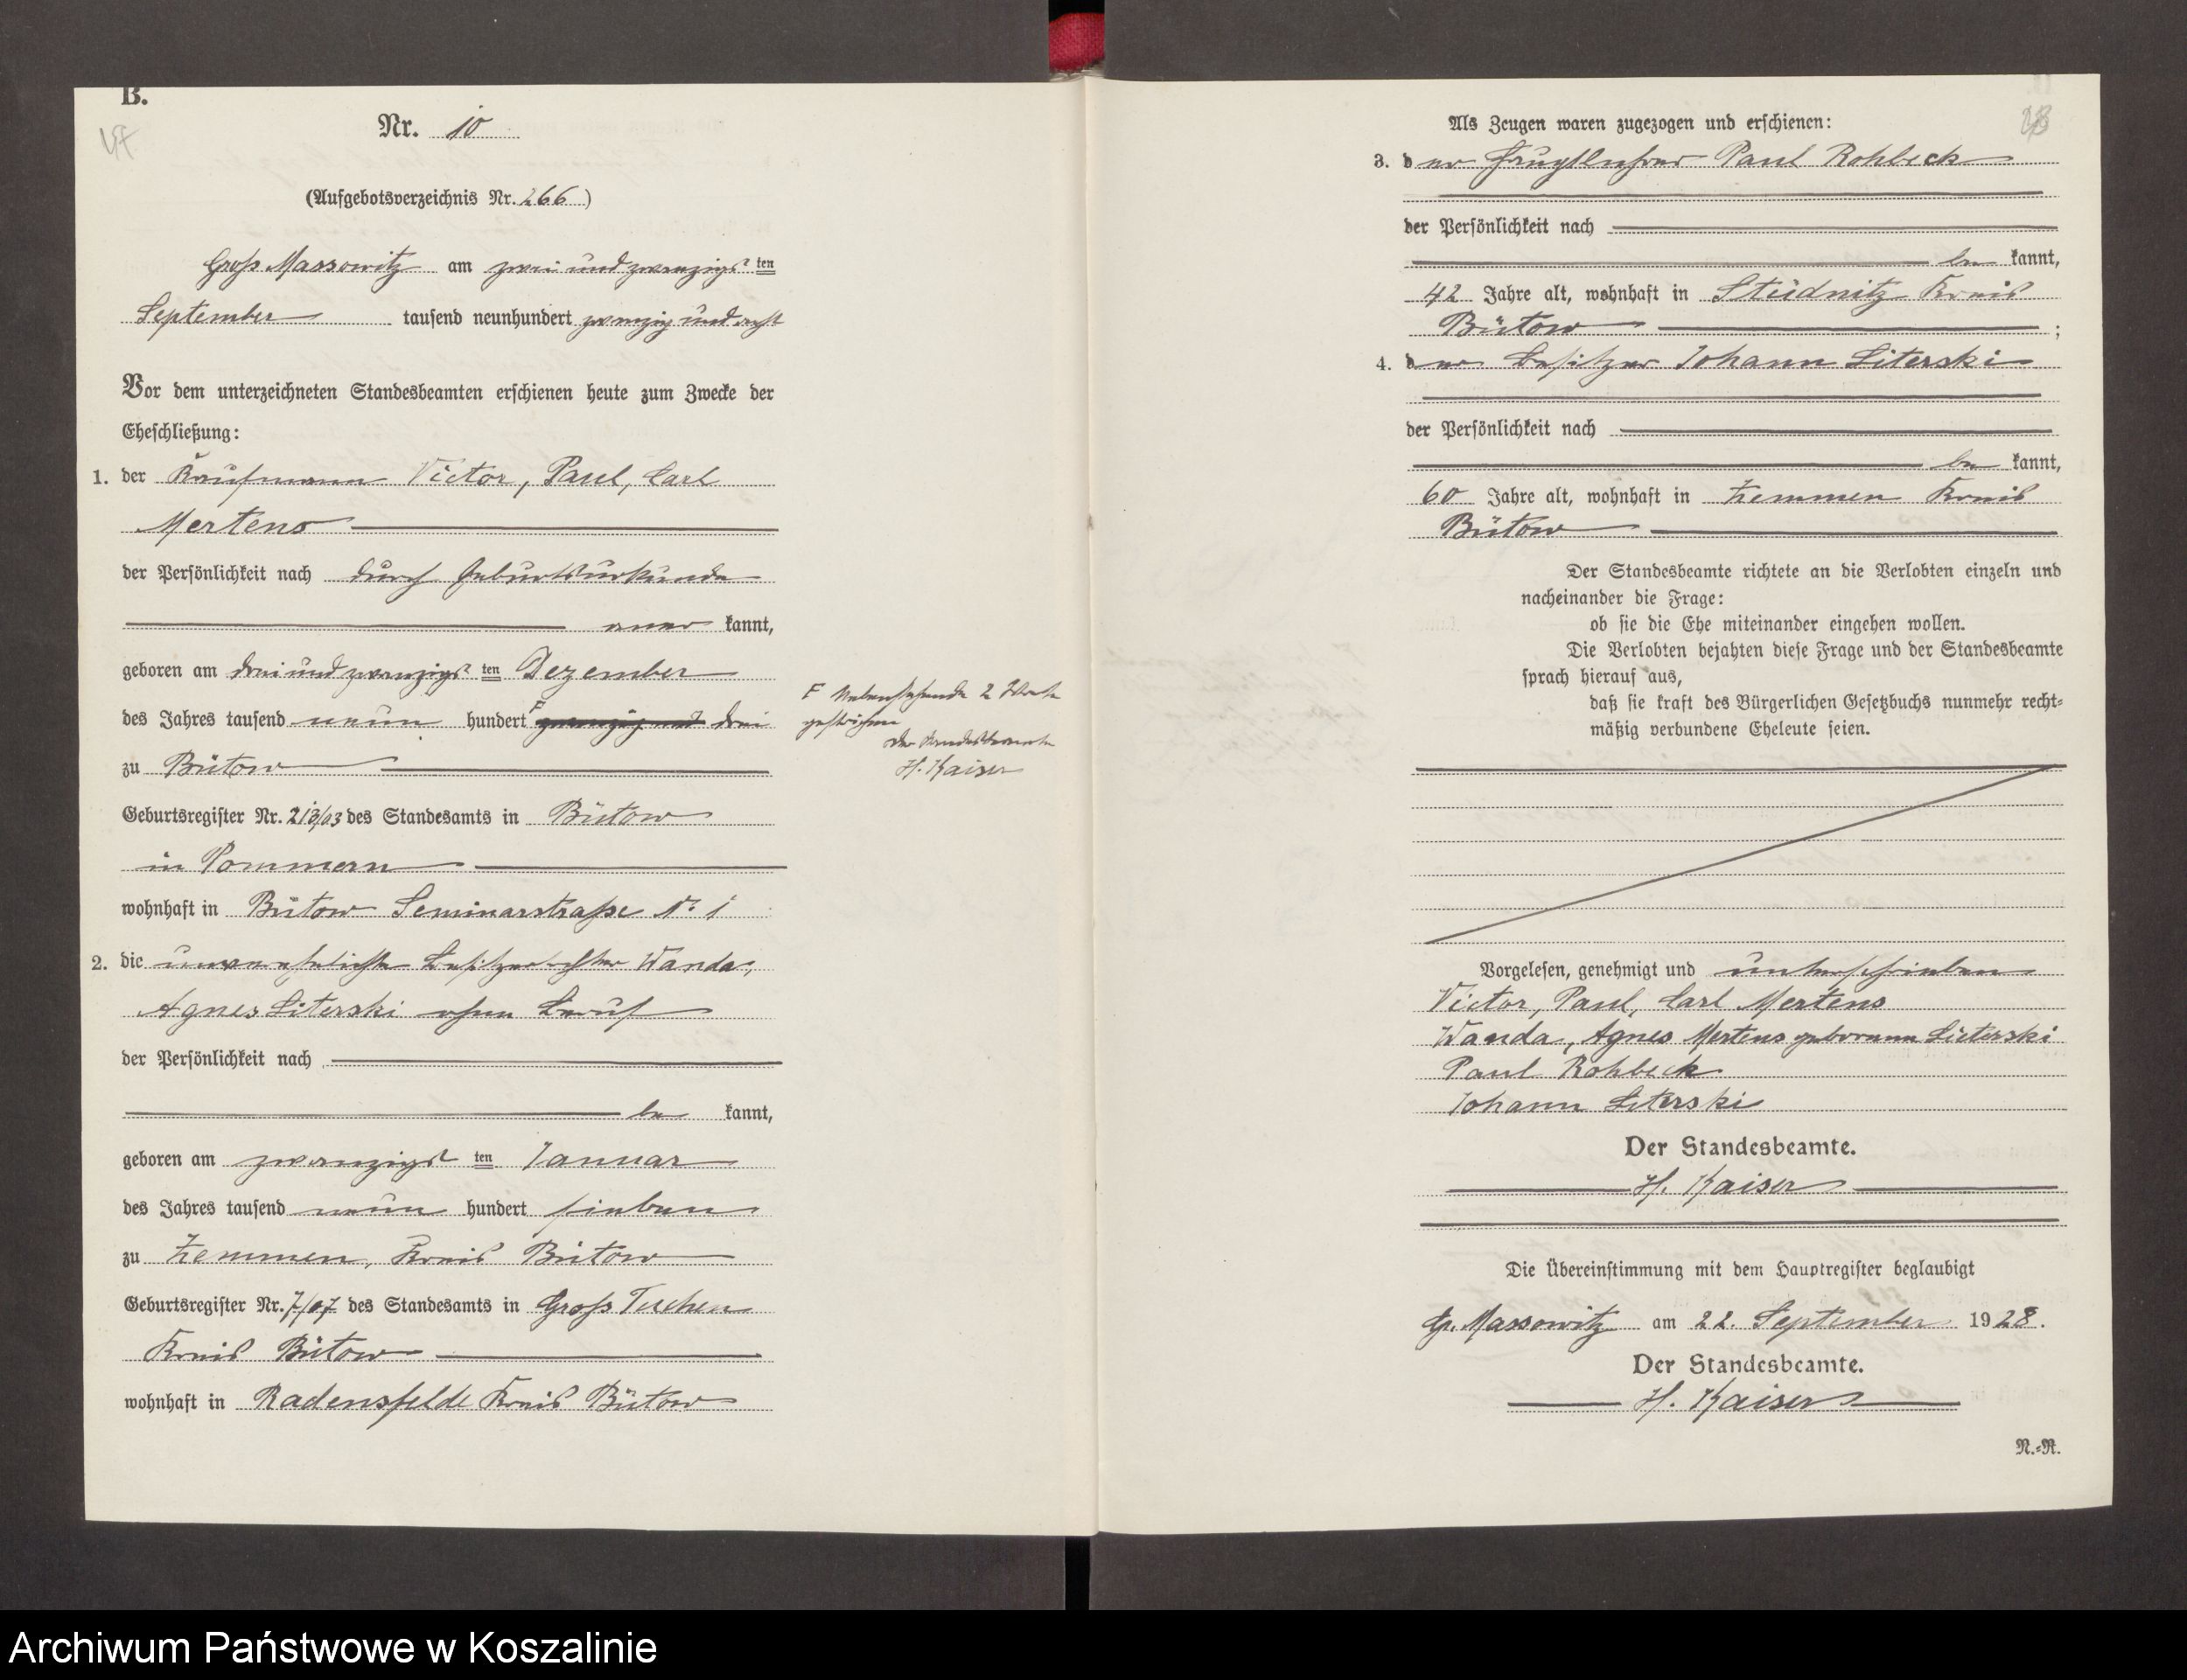 B.
47
Nr. 10
(Aufgebotsverzeichnis Nr. 266)
Groß Massowitz am zwei und zwanzigsten
September tausend neunhundert zwanzig und acht
Vor dem unterzeichneten Standesbeamten erschienen heute zum Zwecke der
Eheschließung:
1. der Kaufmann Victor, Paul, Carl
Mertens
der Persönlichkeit nach durch Geburtsurkunde
aner kannt,
geboren am drei und zwanzigsten Dezember
des Jahres tausend neun hundert zwanzig und drei
zu Bütow
Geburtsregister Nr. 213/03 des Standesamts in Bütow
in Pommern
wohnhaft in Bütow Seminarstraße Nr 1
2. die unverehelichte Besitzertochter Wanda,
Agnes Literski ohne Beruf
der Persönlichkeit nach
be kannt,
geboren am zwanzigsten Januar
des Jahres tausend neun hundert sieben
zu Zemmen, Kreis Bütow
Geburtsregister Nr. 7/07 des Standesamts in Groß Tuchen
Kreis Bütow
wohnhaft in Radensfelde Kreis Bütow
F Nebenstehende 2 Worte
gestrichen
Der Standesbeamte
H. Kaiser
Als Zeugen waren zugezogen und erschienen:
3. der Hauptlehrer Paul Rohbeck
der Persönlichkeit nach
be kannt,
42 Jahre alt, wohnhaft in Stüdnitz Kreis
Bütow ;
4. der Besitzer Johann Literski
der Persönlichkeit nach
be kannt,
60 Jahre alt, wohnhaft in Zemmen Kreis
Bütow
Der Standesbeamte richtete an die Verlobten einzeln und
nacheinander die Frage:
ob sie die Ehe miteinander eingehen wollen.
Die Verlobten bejahten diese Frage und der Standesbeamte
sprach hierauf aus,
daß sie kraft des Bürgerlichen Gesetzbuchs nunmehr recht-
mäßig verbundene Eheleute seien.
Vorgelesen, genehmigt und unterschrieben
Victor, Paul, Carl Mertens
Wanda, Agnes Mertens geborene Literski
Paul Rohbeck
Johann Literski
Der Standesbeamte.
H. Kaiser
Die Übereinstimmung mit dem Hauptregister beglaubigt
Gr. Massowitz am 22. September 1928.
Der Standesbeamte.
H. Kaiser
N.-R.
Archiwum Państwowe w Koszalinie